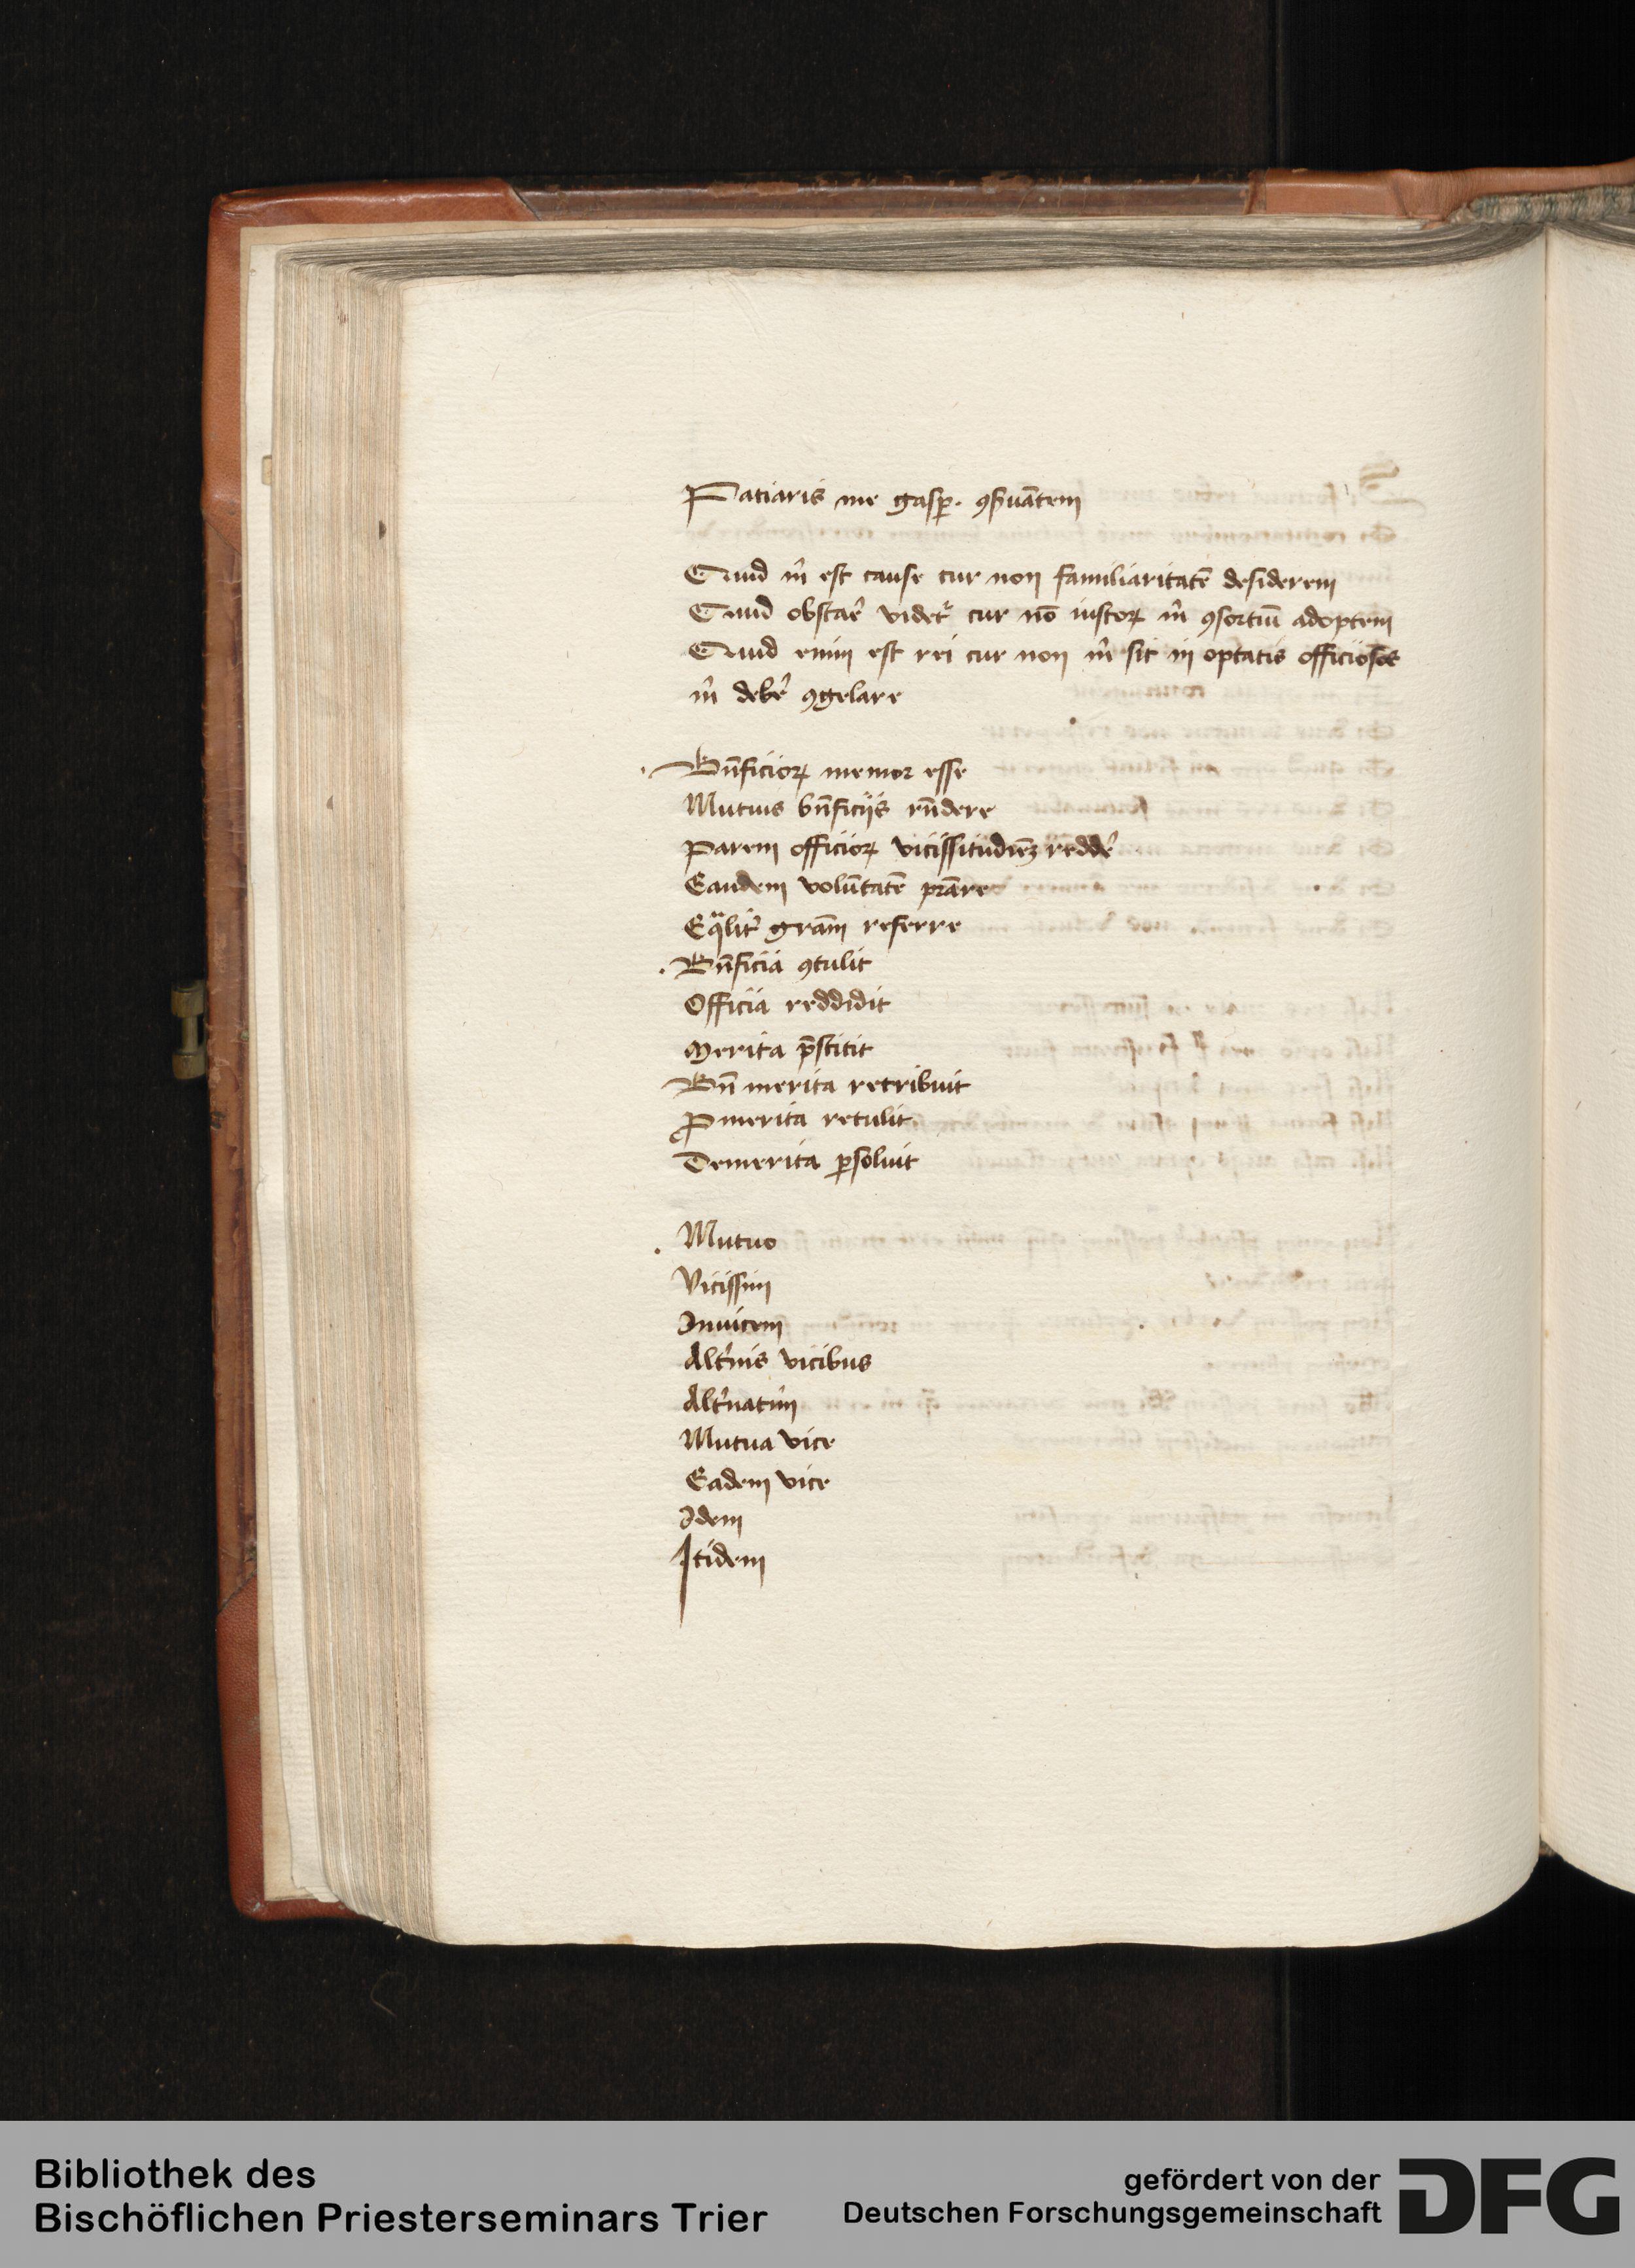 Patiaris me gasp. ꝯẜuātem
Quid m̄ est cause cur non familiaritatē desiderem
Quid obstar̄ videt᷑ cur nō iustoꝝ m̄ ꝯsortiū adoptem
Quid enim est rei cur non m̄ sit in optatis officiosos
m̄ deb̄e ꝯgelare
Bn̄ficioꝝ memor esse
Mutuis bn̄ficijs rn̄dere
Parem officioꝝ vicissitudīeꝫ redde᷑
Eandem volūtatē p̄rare
Eqᷓlit᷑ grām referre
Bn̄ficia ꝯtulit
Officia reddidit
Merita p̄stitit
Bn̄ merita retribuit
Ꝓmerita retulit
Demerita ꝑsoluit
Mutuo
Vicissim
Inuicem
Alt᷑nis vicibus
Alt᷑natim
Mutua vice
Eadem vice
Idem
Itidem
Bibliothek des
Bischöflichen Priesterseminars Trier
gefördert von der
Deutschen Forschungsgemeinschaft
DFG